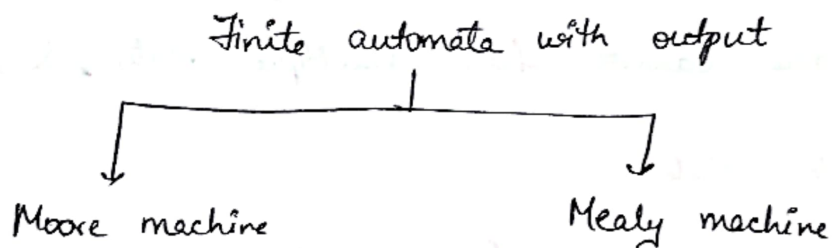 Finite automata with output
Moore machine
Mealy machine